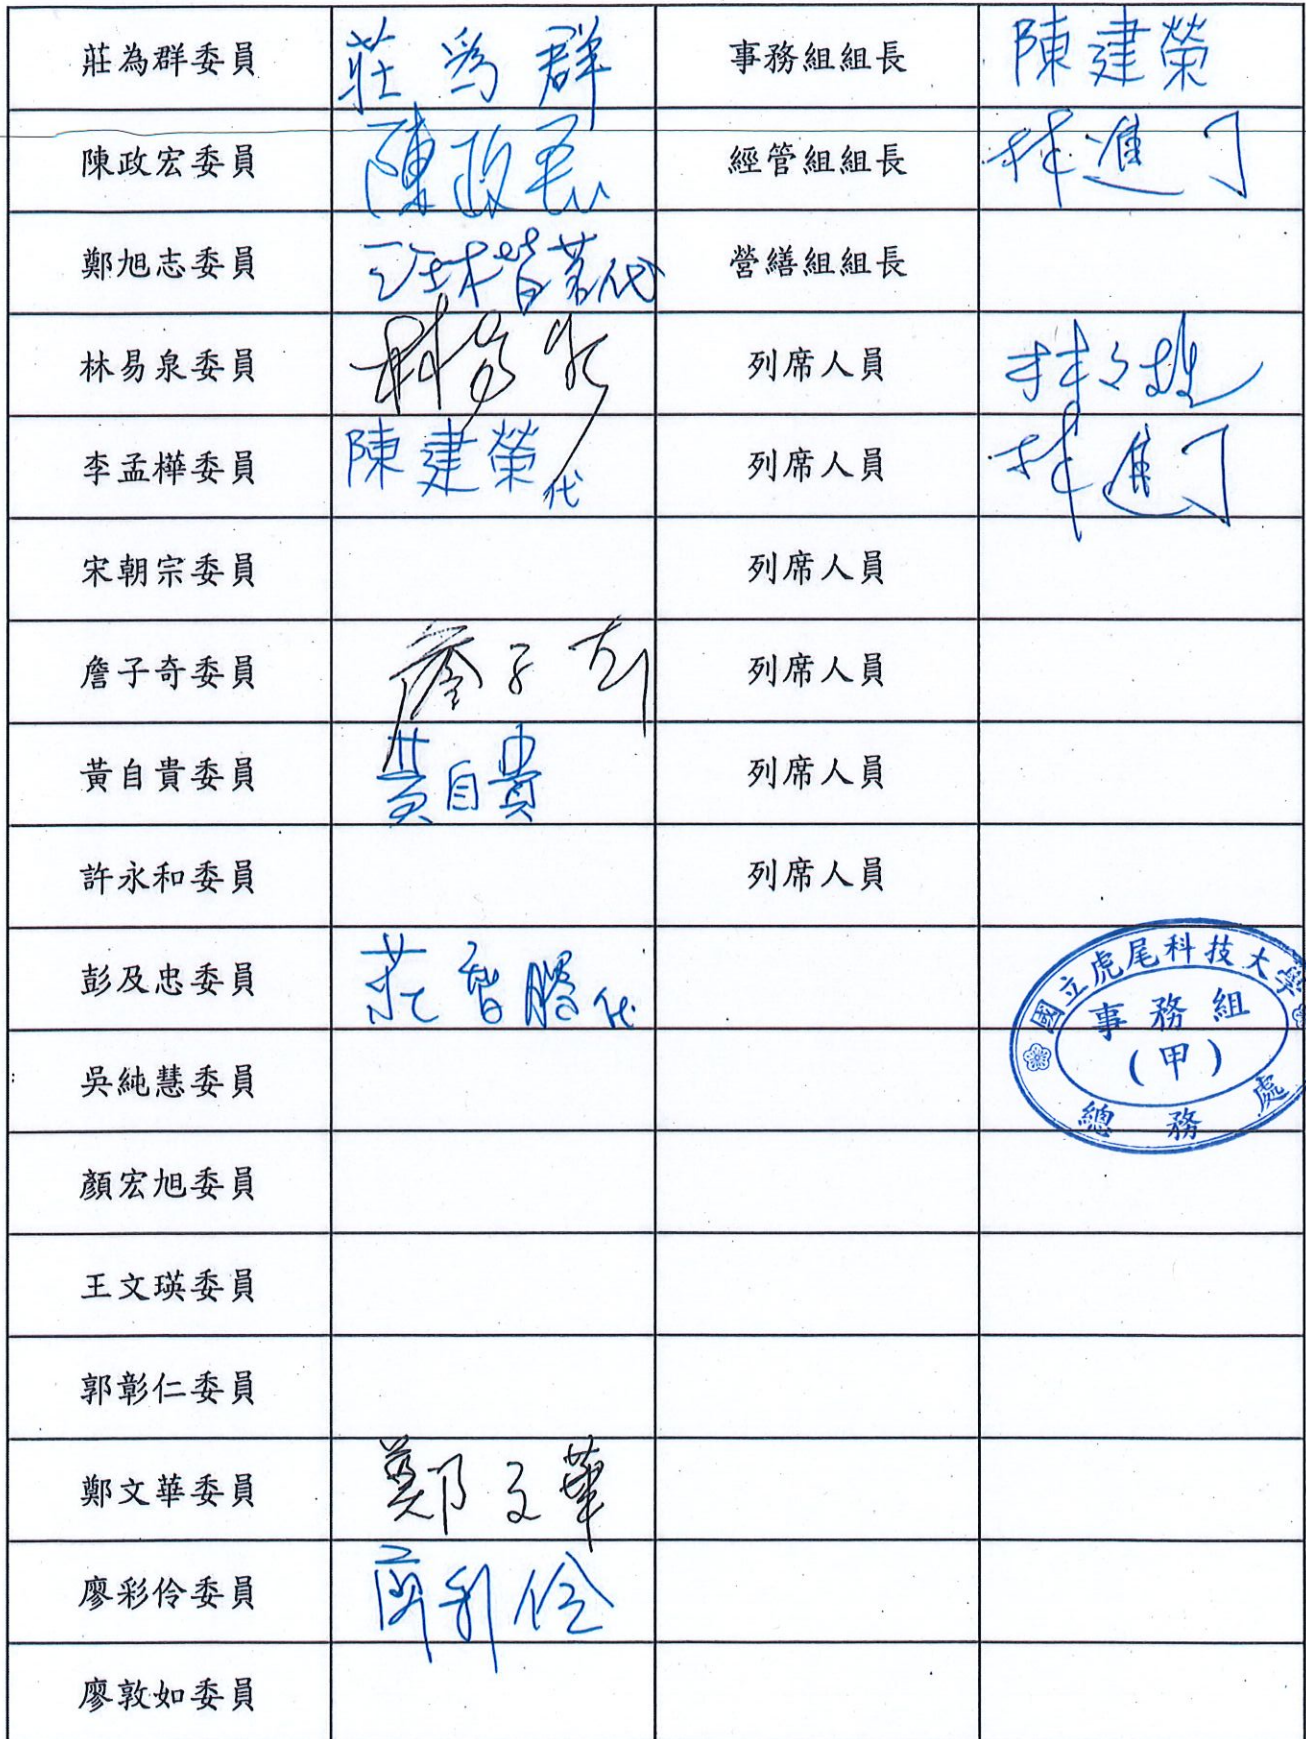 莊為群委員 莊為群 事務組組長 陳建榮
陳政宏委員 陳政宏 經管組組長 林進丁
鄭旭志委員 代 營繕組組長
林易泉委員 林易泉 列席人員 林
李孟樺委員 陳建榮代 列席人員 林進丁
宋朝宗委員 列席人員
詹子奇委員 詹子奇 列席人員
黃自貴委員 黃自貴 列席人員
許永和委員 列席人員
彭及忠委員 莊智勝代
國立虎尾科技大學
事務組
(甲)
總務處
吳純慧委員
顏宏旭委員
王文瑛委員
郭彰仁委員
鄭文華委員 鄭文華
廖彩伶委員 廖彩伶
廖敦如委員